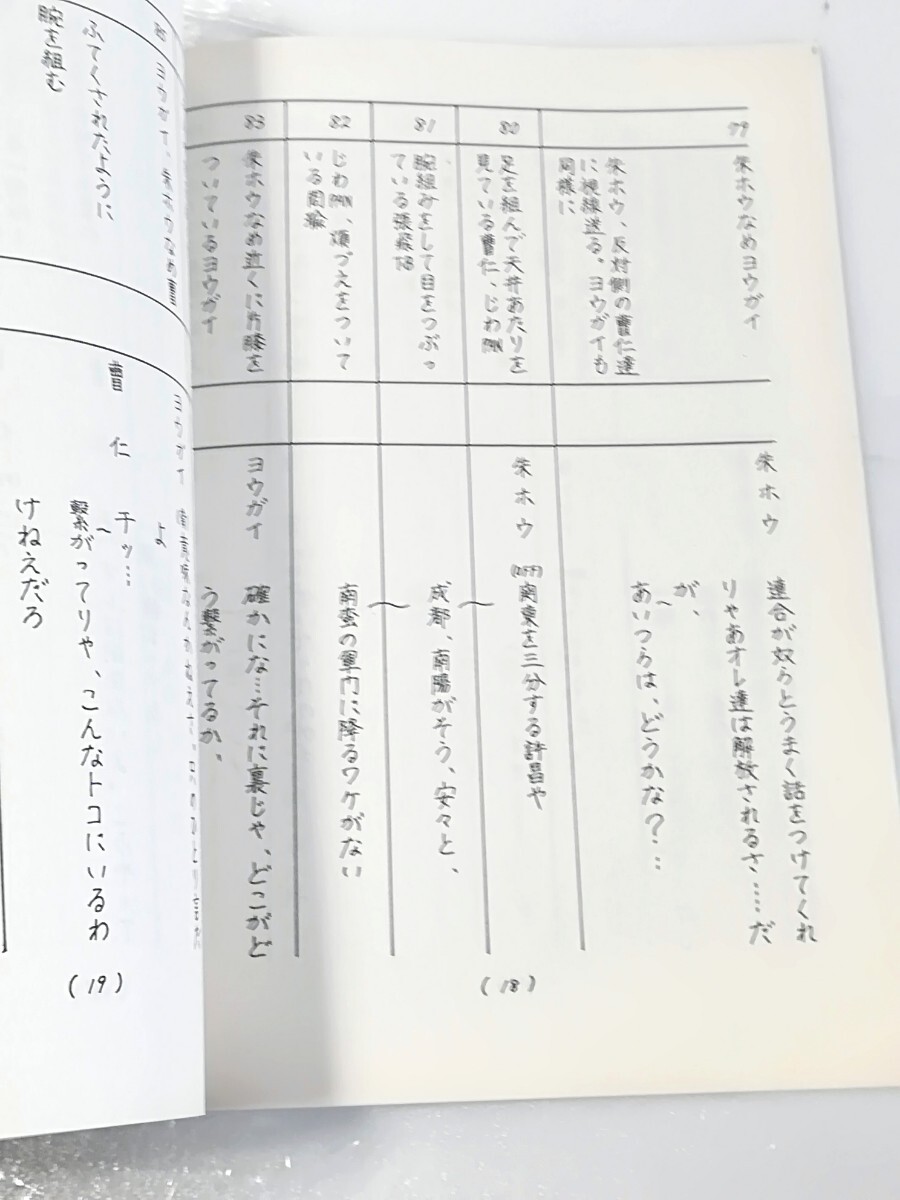 79
朱ホウなめヨウガイ
朱ホウ、反対側の曹仁達
に視線送る。ヨウガイも
同様に
朱ホウ
連合が奴らとうまく話をつけてくれ
りゃあオレ達は解放されるさ……だ
が、
あいつらは、どうかな？……
80
足を組んで天井あたりを
見ている曹仁、じわPAN
朱ホウ
(OFF)関東を三分する許昌や
81
腕組みをして目をつぶっ
ている張飛TB
成都、南陽がそう、安々と、
82
じわPAN、頬づえをついて
いる周瑜
南蛮の軍門に降るワケがない
83
朱ホウなめ近くに片膝を
ついているヨウガイ
ヨウガイ
確かにな…それに裏じゃ、どこがど
う繋がってるか、
(18)
ヨウガイ、朱ホウなめ曹
ふてくされたように
腕を組む
ヨウガイ
よ
曹仁
チッ…
繋がってりゃ、こんなトコにいるわ
けねえだろ
(19)